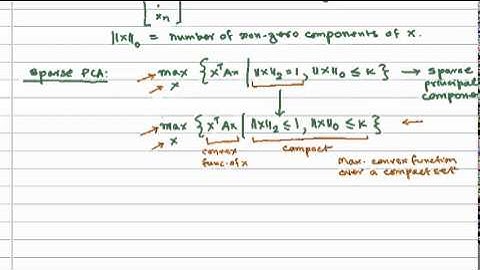 xn
||x||₀ = number of non-zero components of x.
sparse PCA: max {xᵀAx | ||x||₂=1, ||x||₀ ≤ k} → sparse principal component
x
max {xᵀAx | ||x||₂ ≤ 1, ||x||₀ ≤ k} ←
x
convex func. of x
compact
max. convex function over a compact set